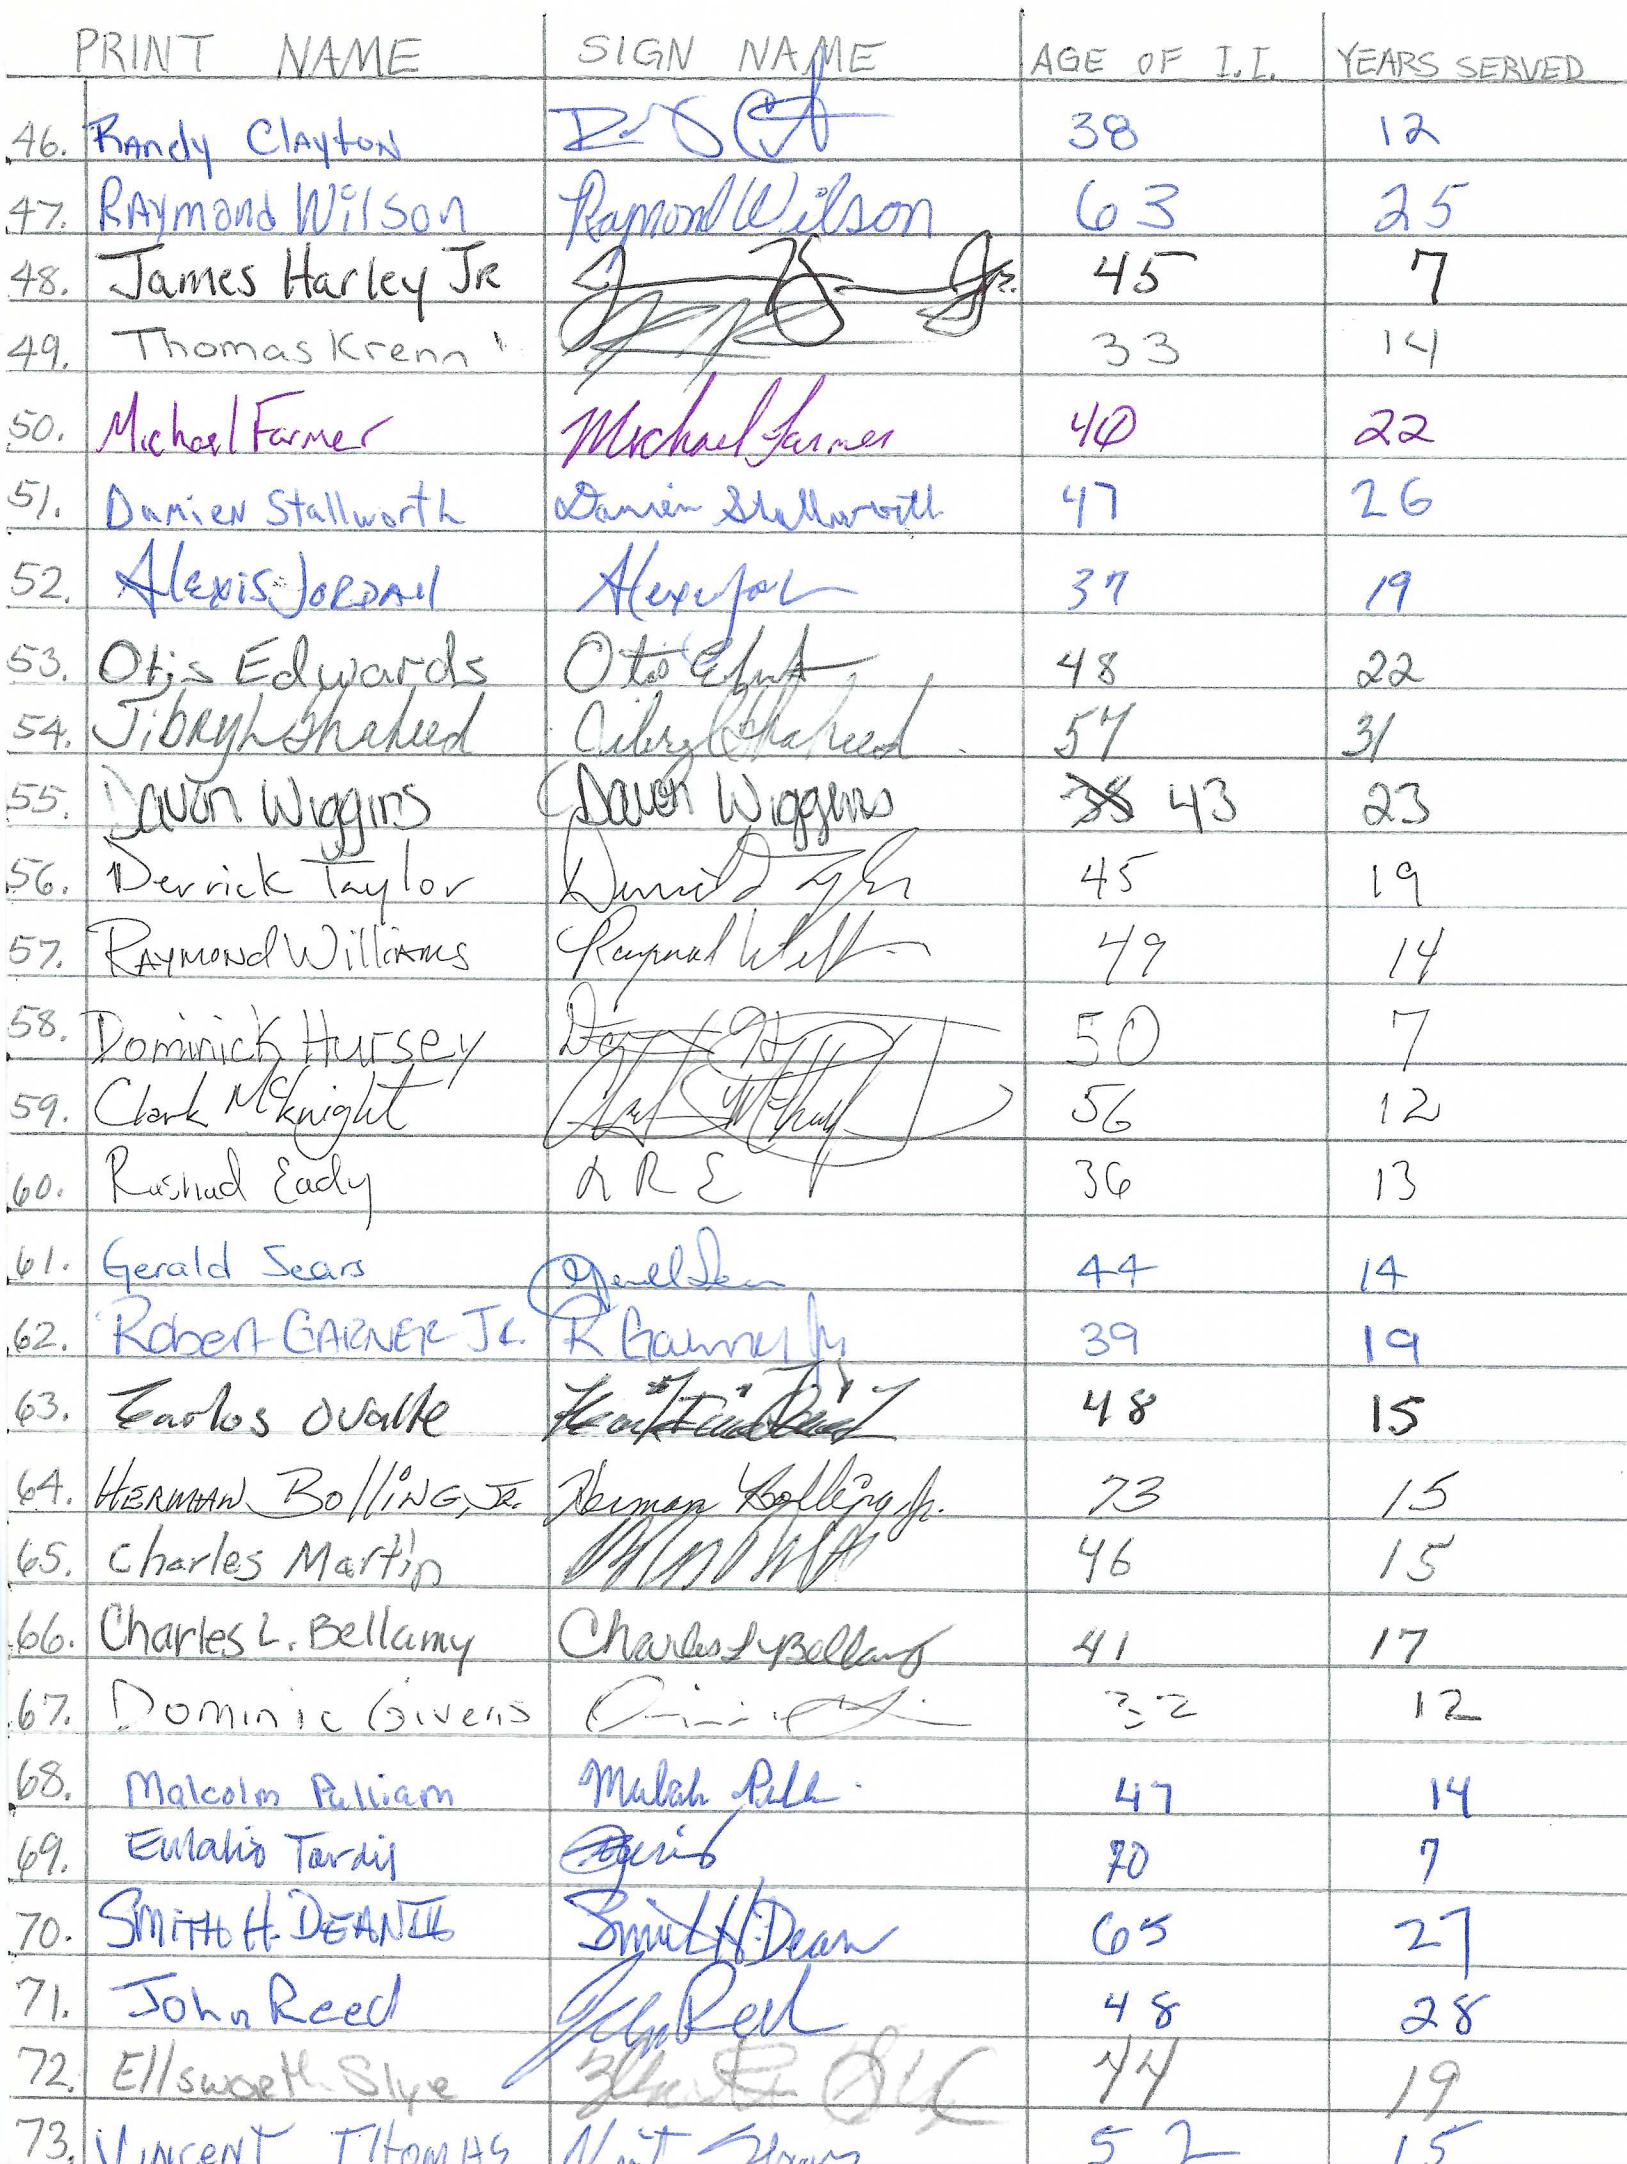 PRINT NAME SIGN NAME AGE OF I.I. YEARS SERVED
46. Randy Clayton 38 12
47. Raymond Wilson Raymond Wilson 63 25
48. James Harley Jr 45 7
49. Thomas Krenn 33 14
50. Michael Farmer Michael Farmer 40 22
51. Damien Stallworth Damien Stallworth 47 26
52. Alexis Jordan 37 19
53. Otis Edwards Otis 48 22
54. Jibryl Shaheed Jibryl Shaheed 57 31
55. Davon Wiggins Davon Wiggins 43 23
56. Derrick Taylor 45 19
57. Raymond Williams Raymond 49 14
58. Dominick Hursey 50 7
59. Clark McKnight 56 12
60. Rashad Eady R E 36 13
61. Gerald Sears 44 14
62. Robert GARNER JR. R Garner Jr 39 19
63. Ovalle 48 15
64. HERMAN BOllING, JR. Herman Bolling Jr. 73 15
65. Charles Martin 46 15
66. Charles L. Bellamy Charles L Bellamy 41 17
67. Dominic Givens 32 12
68. Malcolm Pulliam 47 14
69. Eulalio Tardis 70 7
70. SMITH H. DEAN III Smith H. Dean 65 27
71. John Reed John Reed 48 28
72. Ellsworth Slye 44 19
73. VINCENT THOMAS 52 15